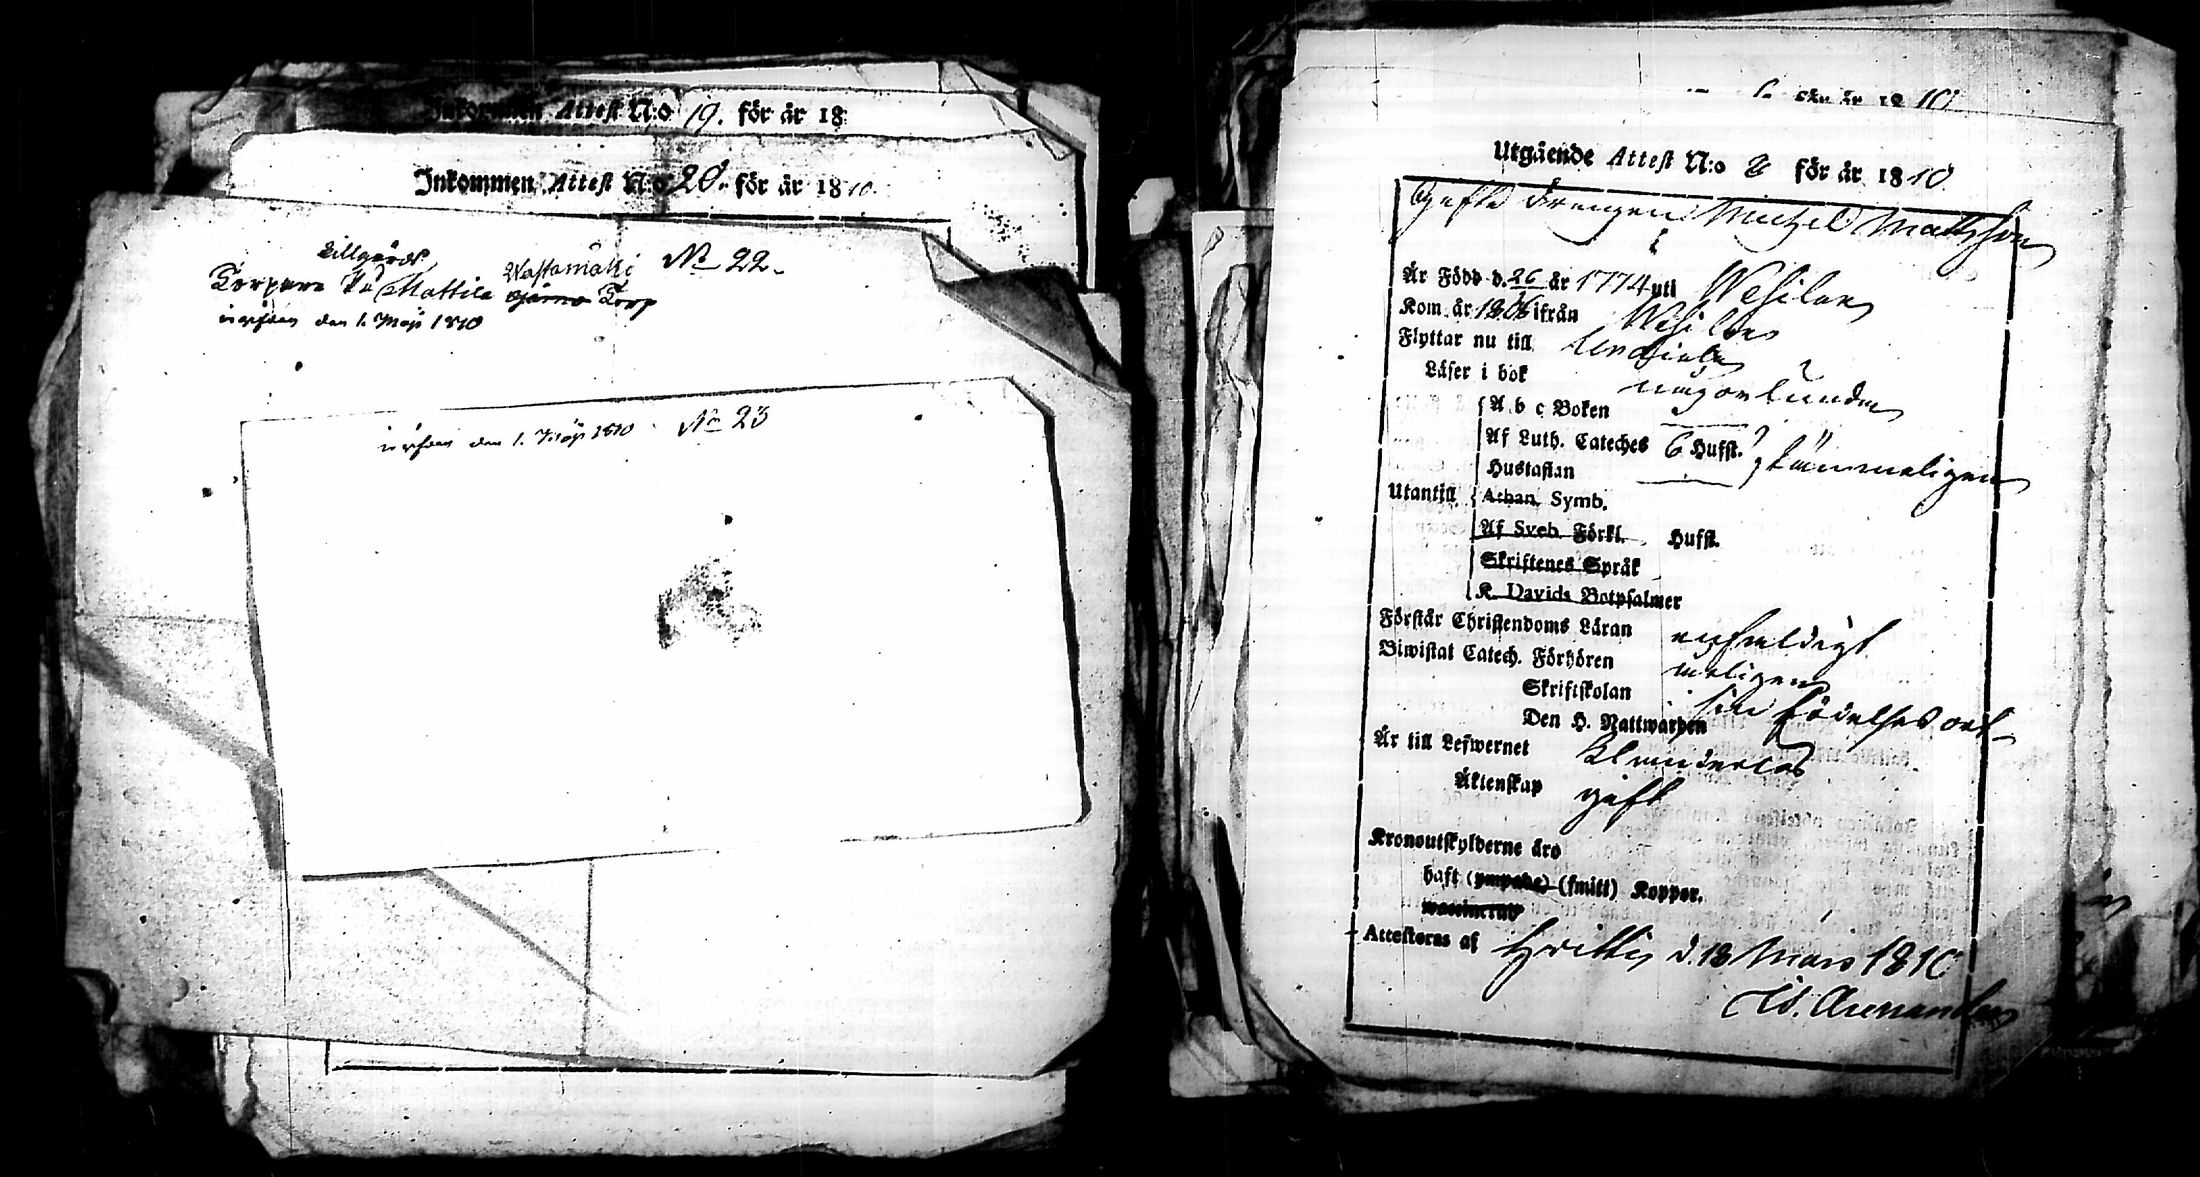 Inkommen Attest N:o 19. för år 18
Inkommen Attest N:o 20. för år 1810.
Lillgårds
Torpare På Mattila Wastamäki Torp N:o 22.
den 1. Maji 1810
den 1. Maji 1810 N:o 23
för år 1810
Utgående Attest N:o för år 1810
Gifte Drengen Michel Mattsson
Är Född d. 26 år 1774 uti Wesilax
Kom år 1806 ifrån Wesilax
Flyttar nu till Urdiala
Läser i bok någorlunda
A b c Boken
Af Luth. Cateches 6 Hufst.
Hustaflan
Utantill Athan. Symb.
Af Sveb. Förkl. Hufst.
Skriftenes Språk
K. Davids Botpsalmer
Förstår Christendoms Läran enfaldigt
Biwistat Catech. Förhören
Skriftskolan
Den H. Nattwarden födelseort
Är till Lefwernet klanderlös
Äktenskap gift
Kronoutskylderne äro
haft (ympade) (smitt) Koppor.
waccinerad
Attesteras af d. 18 Mars 1810